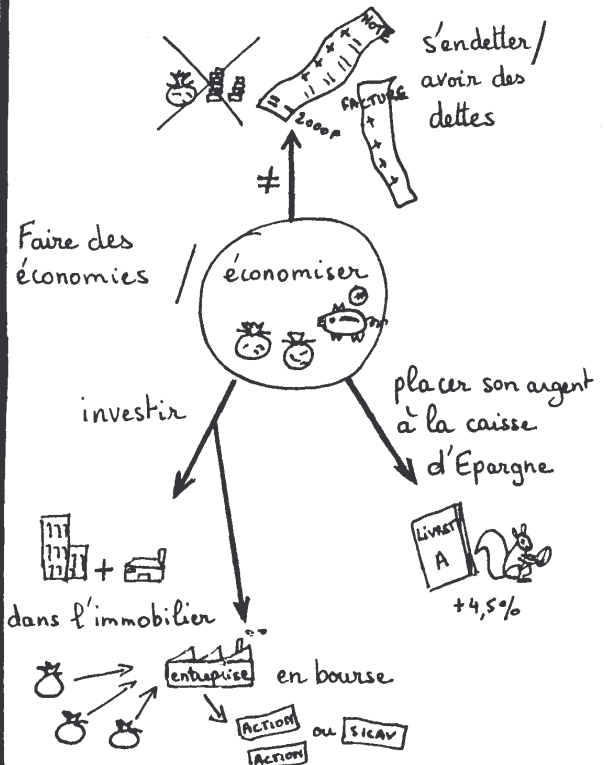 NOTE
s'endetter/
avoir des
dettes
= - 2000F
FACTURE
≠
Faire des
économies /
économiser
investir
placer son argent
à la caisse
d'Epargne
LIVRET
A
+4,5%
+
dans l'immobilier
entreprise
en bourse
ACTION
ou
SICAV
ACTION